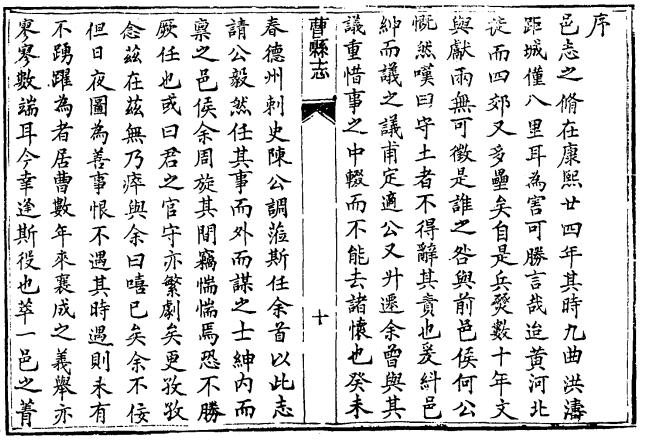 序
邑志之脩在康熙廿四年其時九曲洪濤
距城僅八里耳為害可勝言哉迨黃河北
徙而四郊又多壘矣自是兵燹數十年文
與獻兩無可徵是誰之咎與前邑侯何公
慨然嘆曰守土者不得辭其責也爰糾邑
紳而議之議甫定適公又升遷余曾與其
議重惜事之中輟而不能去諸懷也癸未
曹縣志
十
春德州刺史陳公調蒞斯任余首以此志
請公毅然任其事而外而謀之士紳內而
稟之邑侯余周旋其間竊惴惴焉恐不勝
厥任也或曰君之官守亦繁劇矣更孜孜
念茲在茲無乃瘁與余曰嘻已矣余不佞
但日夜圖為善事恨不遇其時遇則未有
不踴躍為者居曹數年來襄成之義舉亦
寥寥數端耳今幸逢斯役也萃一邑之菁